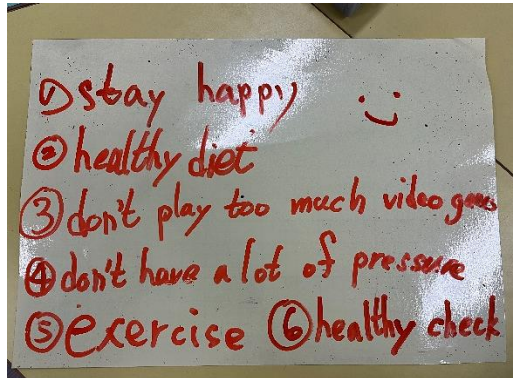 ① stay happy
② healthy diet
③ don't play too much video games
④ don't have a lot of pressure
⑤ exercise ⑥ healthy check